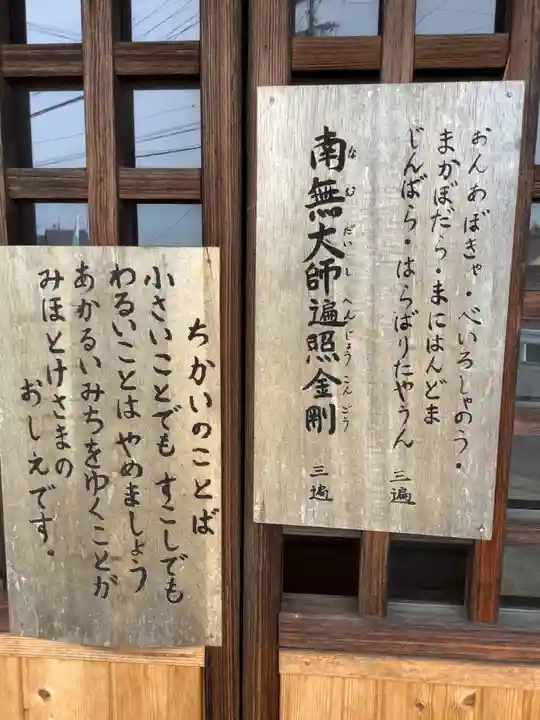 おんあぼきゃ・べいろしゃのう・
まかぼだら・まにはんどま
じんばら・はらばりたやうん 三遍
南無大師遍照金剛 三遍
なむだいしへんじょうこんごう
ちかいのことば
小さいことでも すこしでも
わるいことは やめましょう
あかるいみちをゆくことが
みほとけさまの
おしえです。